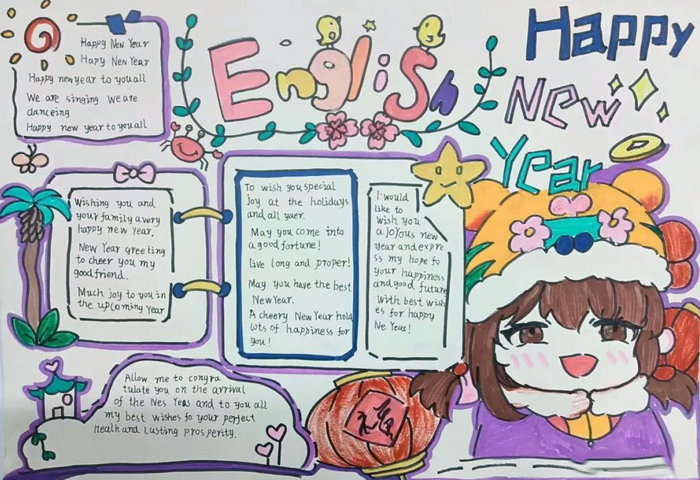 Happy New Year
Hapy New Year
Happy newyear to you all
We are singing we are
danceing
Happy new year to you all
English
Happy
New
Year
Wishing you and
your family a very
happy new year.
New Year greeting
to cheer you my
good friend.
Much joy to you in
the upcoming year
To wish you special
joy at the holidays
and all yaer.
May you come into
a good fortune!
live long and proper!
May you have the best
New Year.
A cheery New Year hold
lots of happiness for
you!
I would
like to
wish you
a joyous new
year and expre
ss my hope fo
your happiness
and good future
With best wish
es for happy
Ne Yeas!
Allow me to congra
tulate you on the arrival
of the Nes Yeas and to you all
my best wishes fo your perfect
healh and lasting prosperity.
福